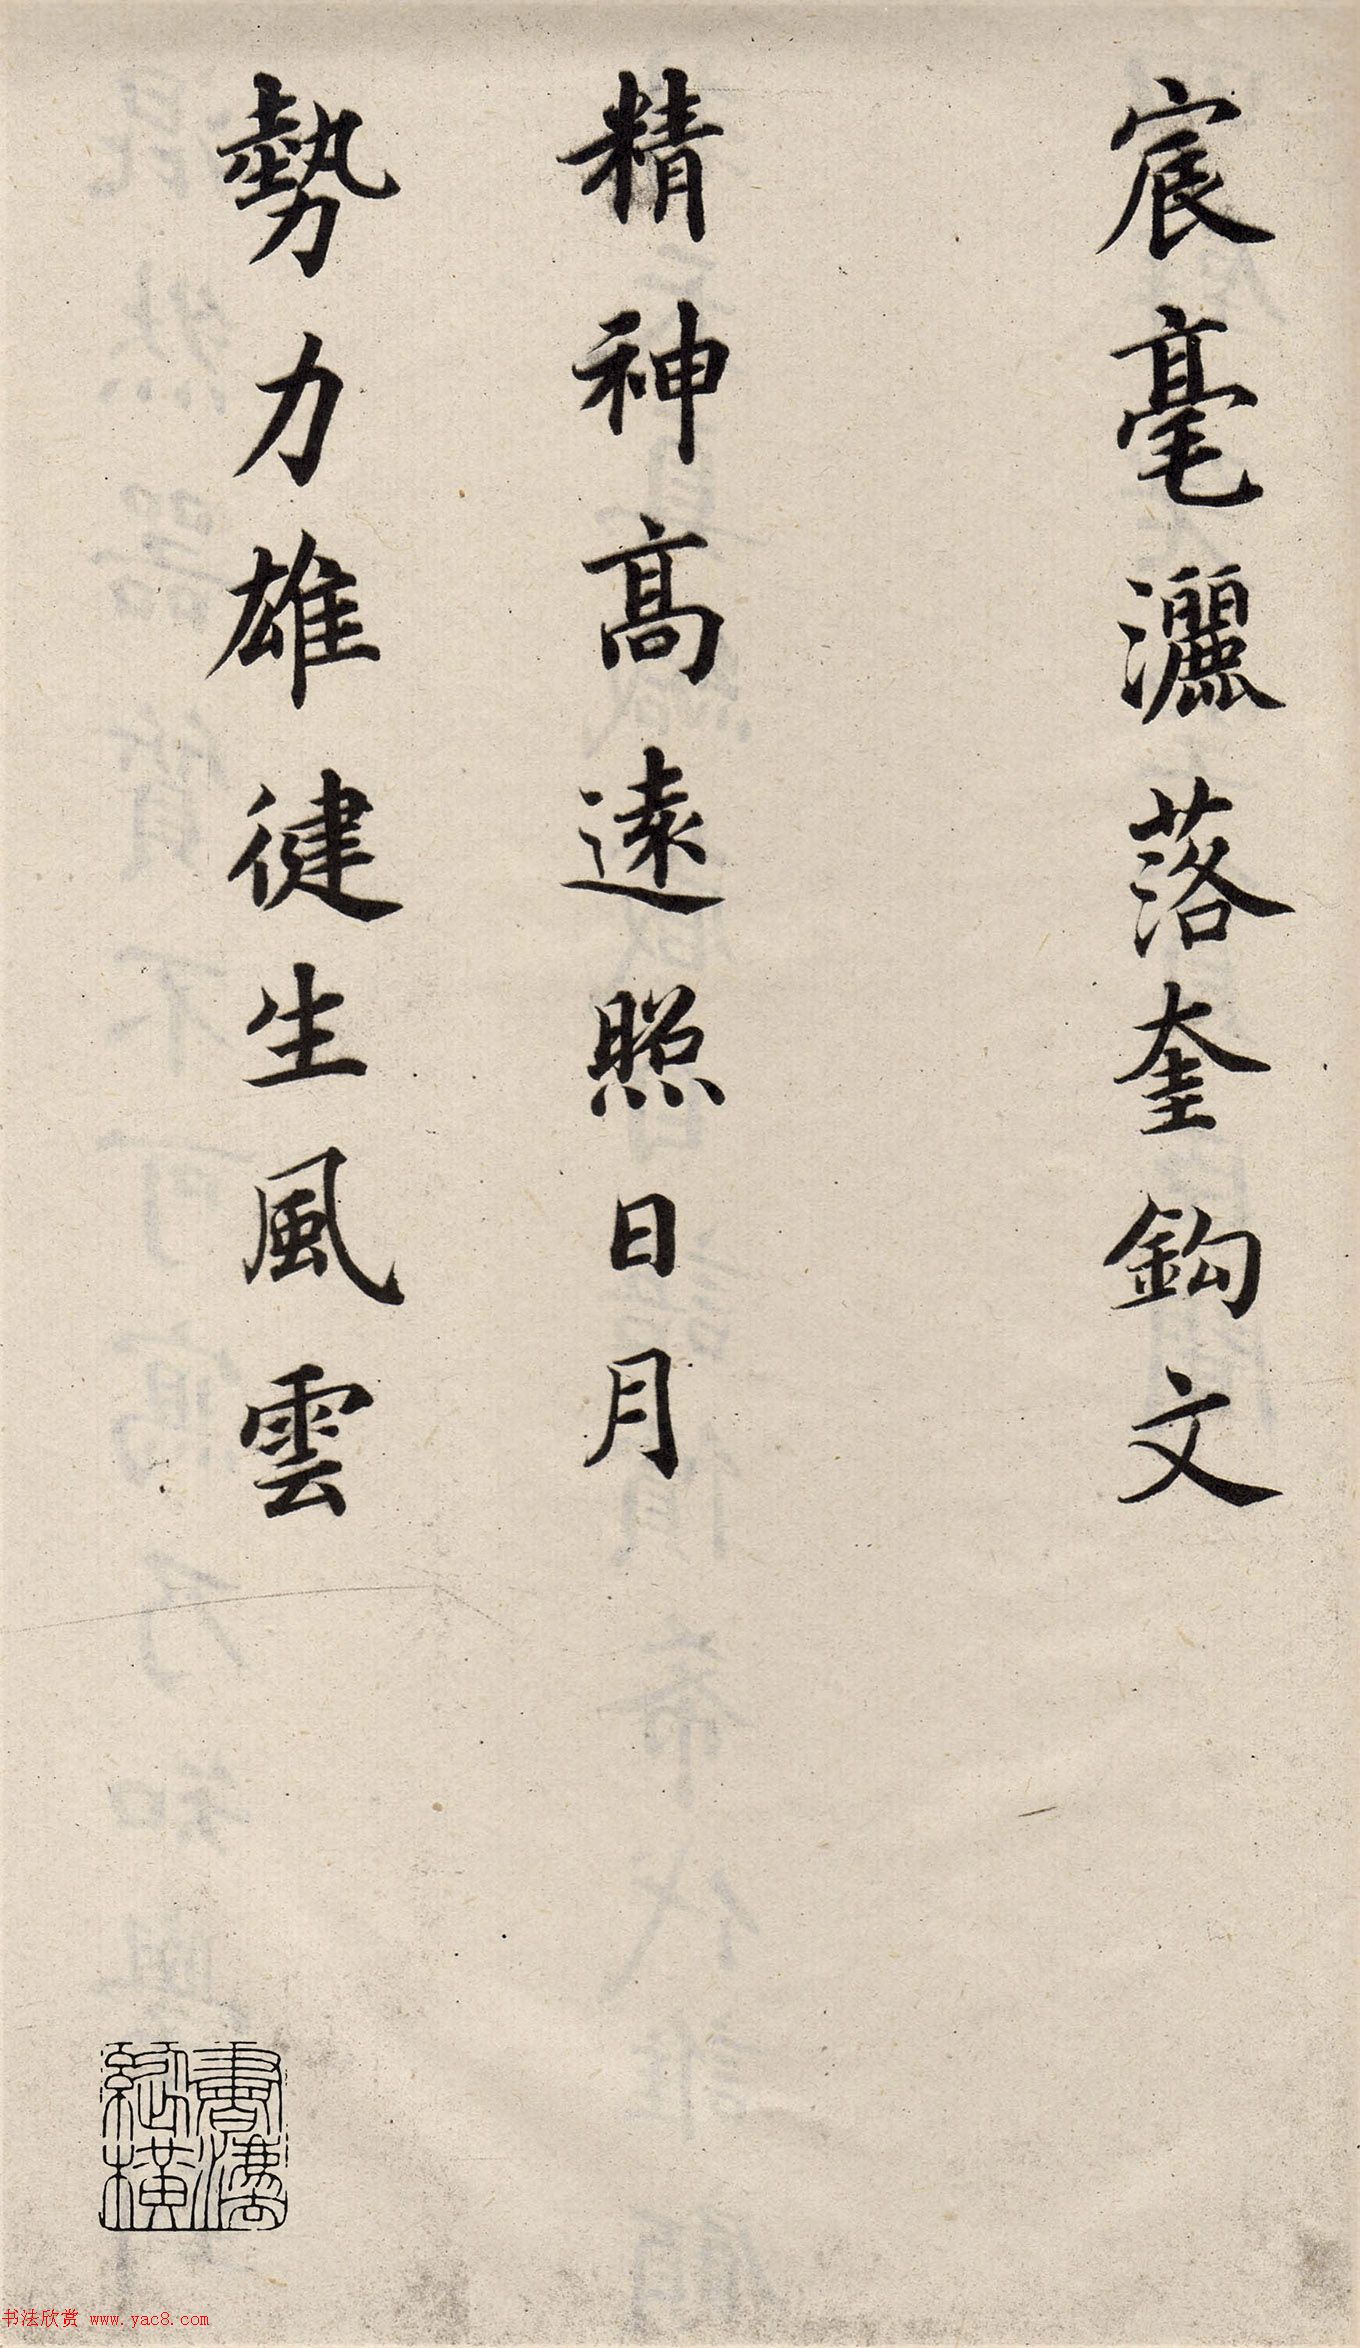 宸毫灑落奎鈎文
精神髙遠照日月
勢力雄健生風雲
書法縱橫
书法欣赏 www.yac8.com